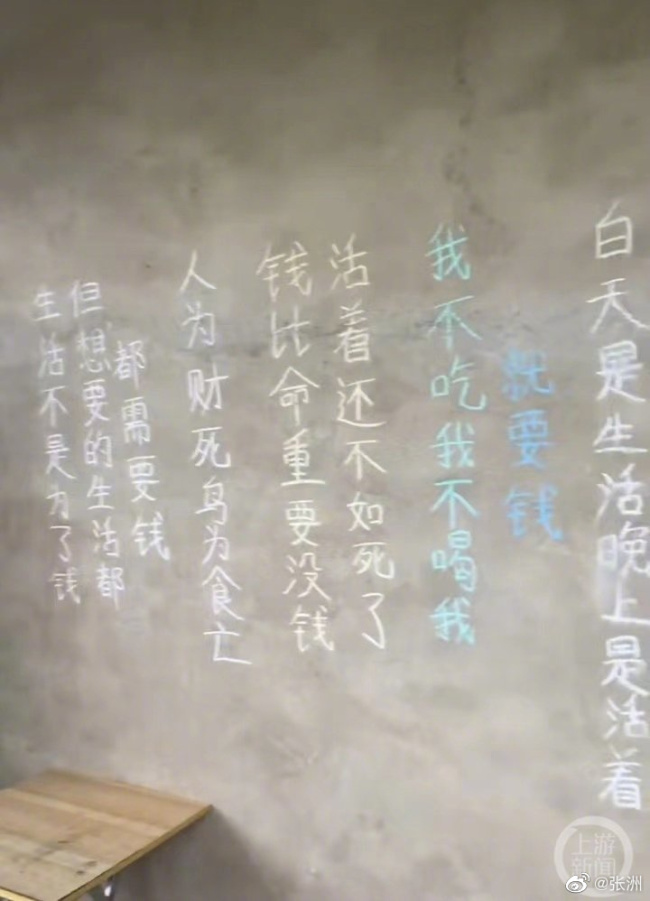 生活不是为了钱
但想要的生活都
都需要钱
人为财死鸟为食亡
钱比命重要没钱
活着还不如死了
我不吃我不喝我
就要钱
白天是生活晚上是活着
上游
新闻
@张洲